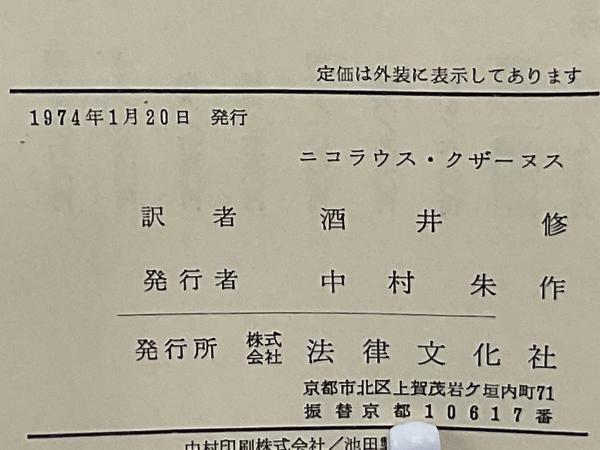 定価は外装に表示してあります
1974年1月20日 発行
ニコラウス・クザーヌス
訳者 酒井 修
発行者 中村朱作
発行所 株式会社 法律文化社
京都市北区上賀茂岩ケ垣内町71
振替京都10617番
中村印刷株式会社/池田